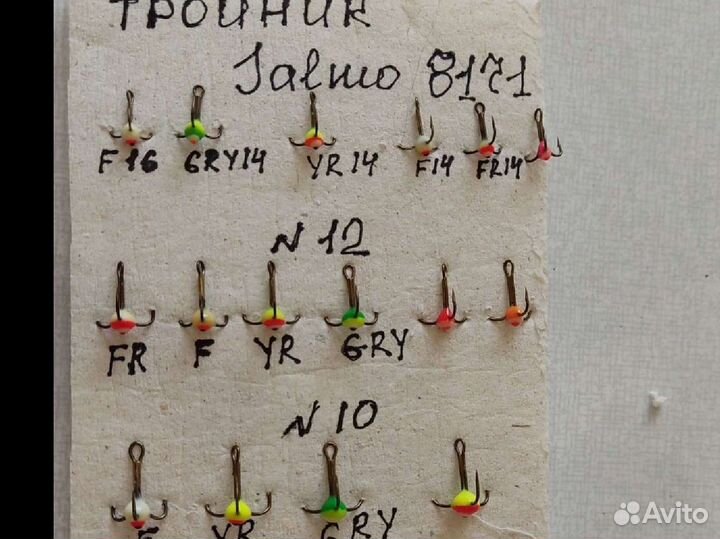 ТРОЙНИК
Salmo 8171
F16 GRY14 YR14 F14 FR14
N 12
FR F YR GRY
N 10
F YR GRY
Avito